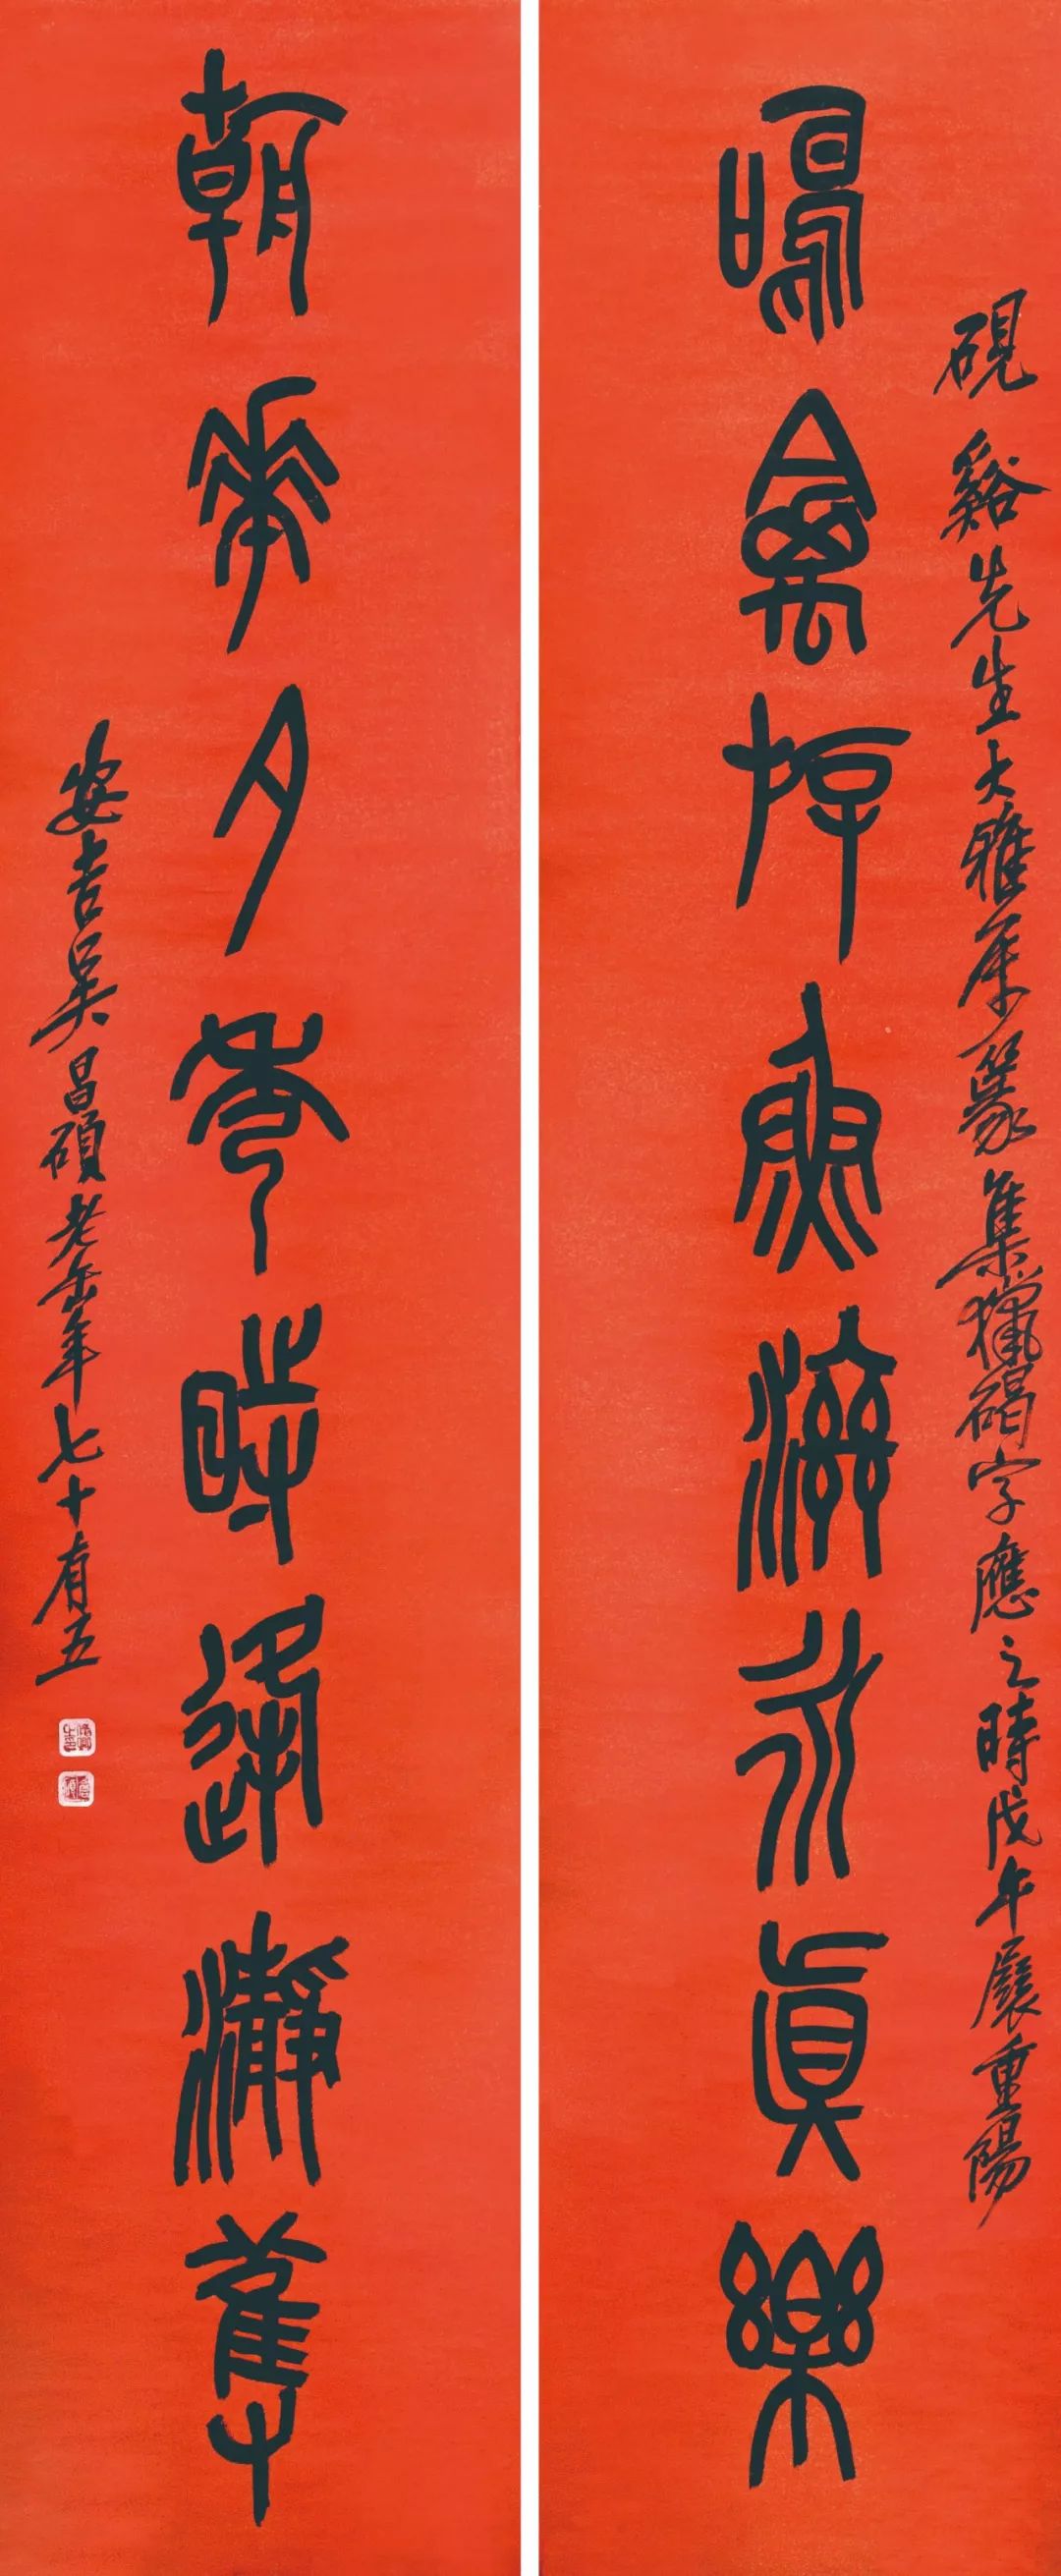 硯谿先生大雅屬篆集獵碣字應之時戊午展重陽
鳴禽斿魚滋永真樂
朝華夕秀時瀞蒦
安吉吳昌碩老缶年七十有五